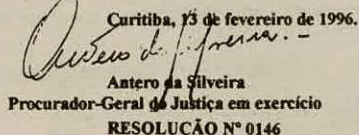 Curitiba, 13 de fevereiro de 1996.
Antero da Silveira
Procurador-Geral de Justiça em exercício
RESOLUÇÃO Nº 0146